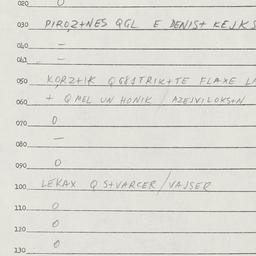 020 0
030 PIROZ+NES QGL E DENIS+ KEJKS
040 –
041 –
050 KORZ+IK QG81TRIK+TE FLAXE LA
060 + QMEL UN HONIK / AZEJVILOKS+N
070 0
080 –
090 0
100 LEKAX Q S+VARCER/VAJSER
110 0
120 0
130 0